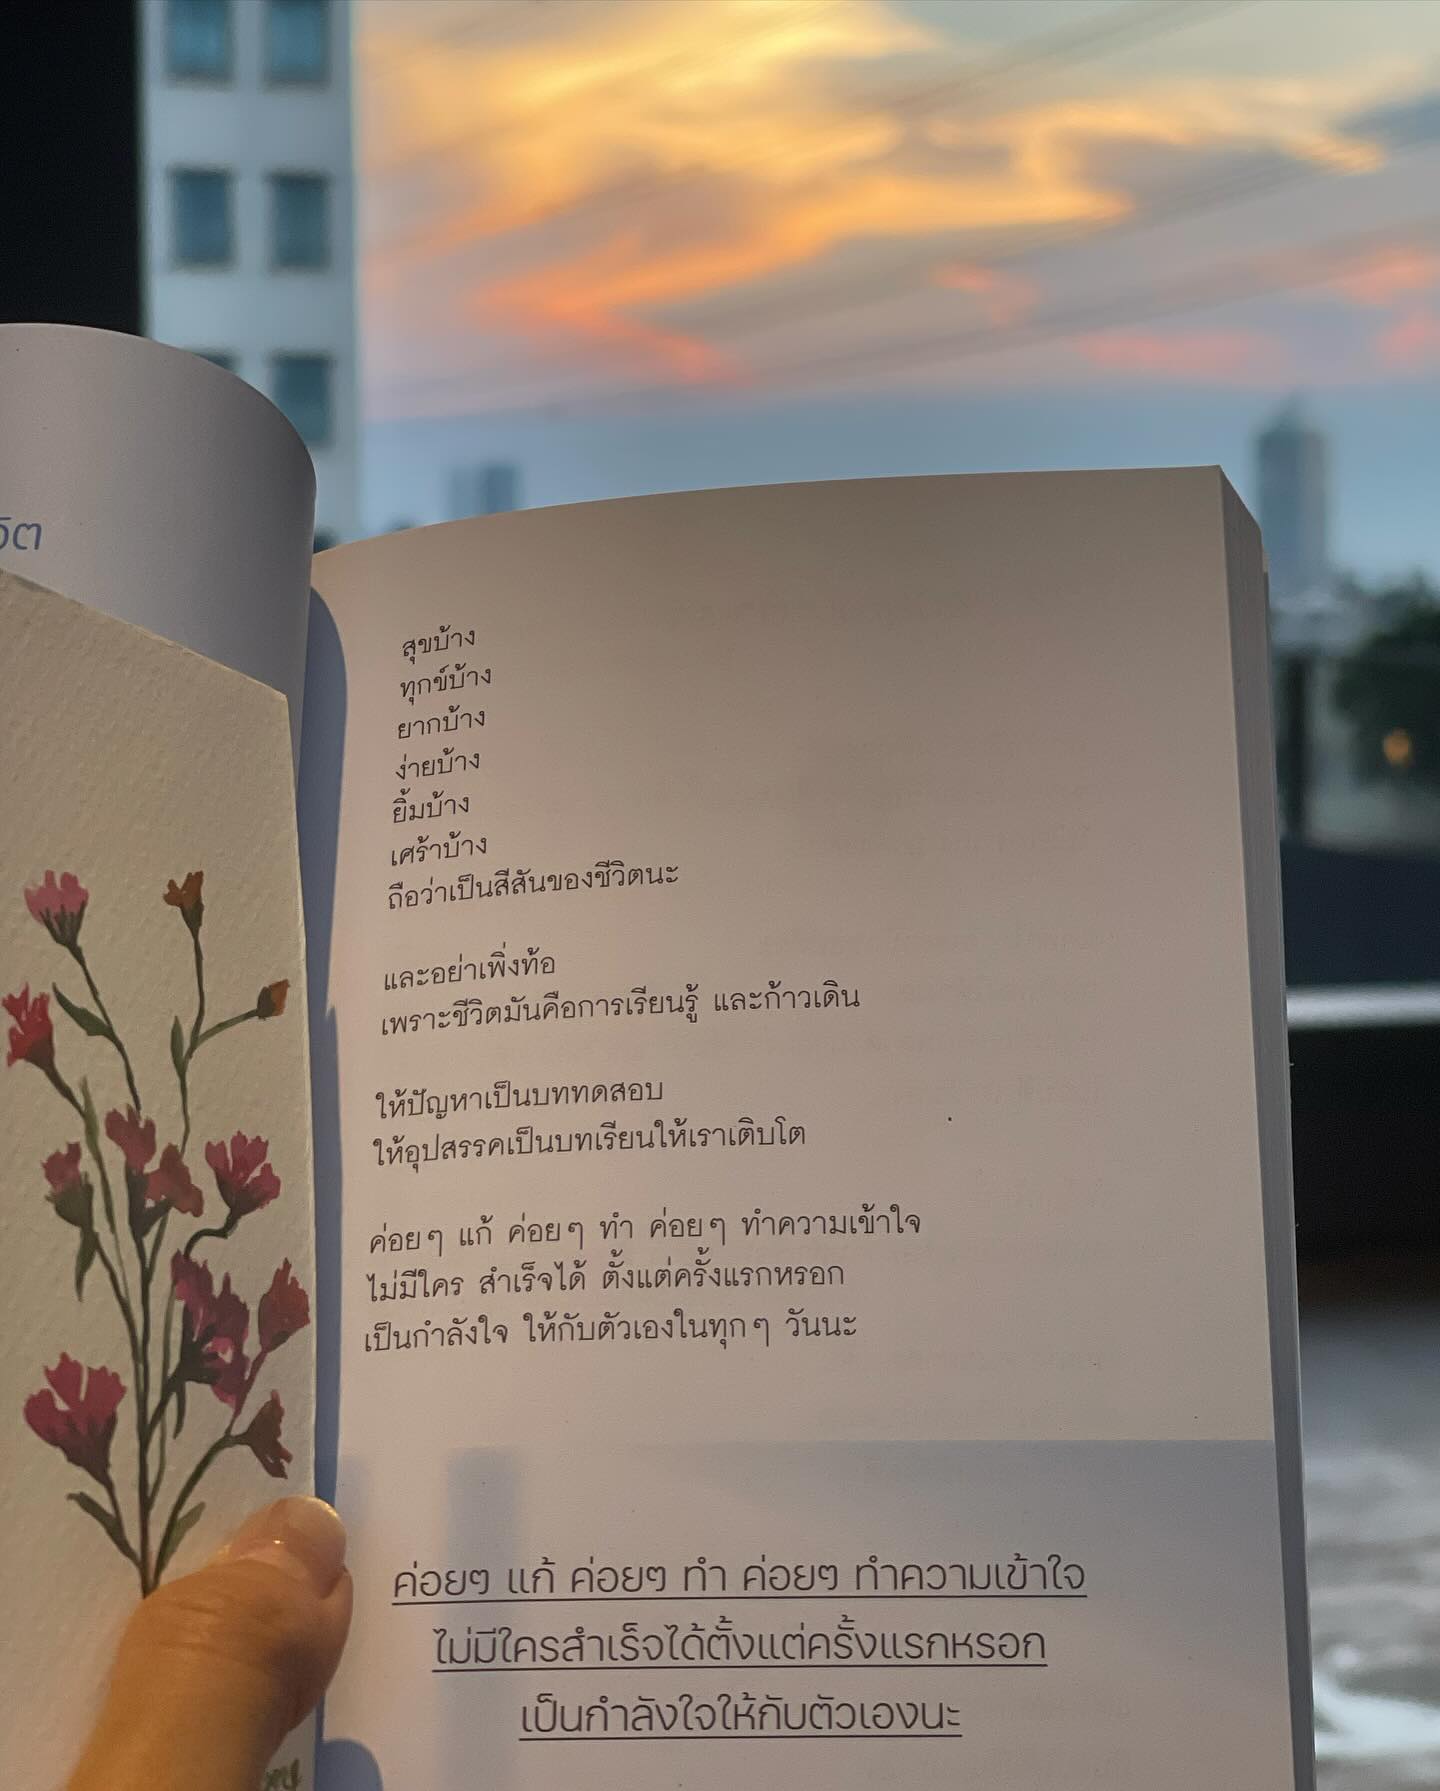 สุขบ้าง
ทุกข์บ้าง
ยากบ้าง
ง่ายบ้าง
ยิ้มบ้าง
เศร้าบ้าง
ถือว่าเป็นสีสันของชีวิตนะ
และอย่าเพิ่งท้อ
เพราะชีวิตมันคือการเรียนรู้ และก้าวเดิน
ให้ปัญหาเป็นบททดสอบ
ให้อุปสรรคเป็นบทเรียนให้เราเติบโต
ค่อยๆ แก้ ค่อยๆ ทำ ค่อยๆ ทำความเข้าใจ
ไม่มีใคร สำเร็จได้ ตั้งแต่ครั้งแรกหรอก
เป็นกำลังใจ ให้กับตัวเองในทุกๆ วันนะ
ค่อยๆ แก้ ค่อยๆ ทำ ค่อยๆ ทำความเข้าใจ
ไม่มีใครสำเร็จได้ตั้งแต่ครั้งแรกหรอก
เป็นกำลังใจให้กับตัวเองนะ